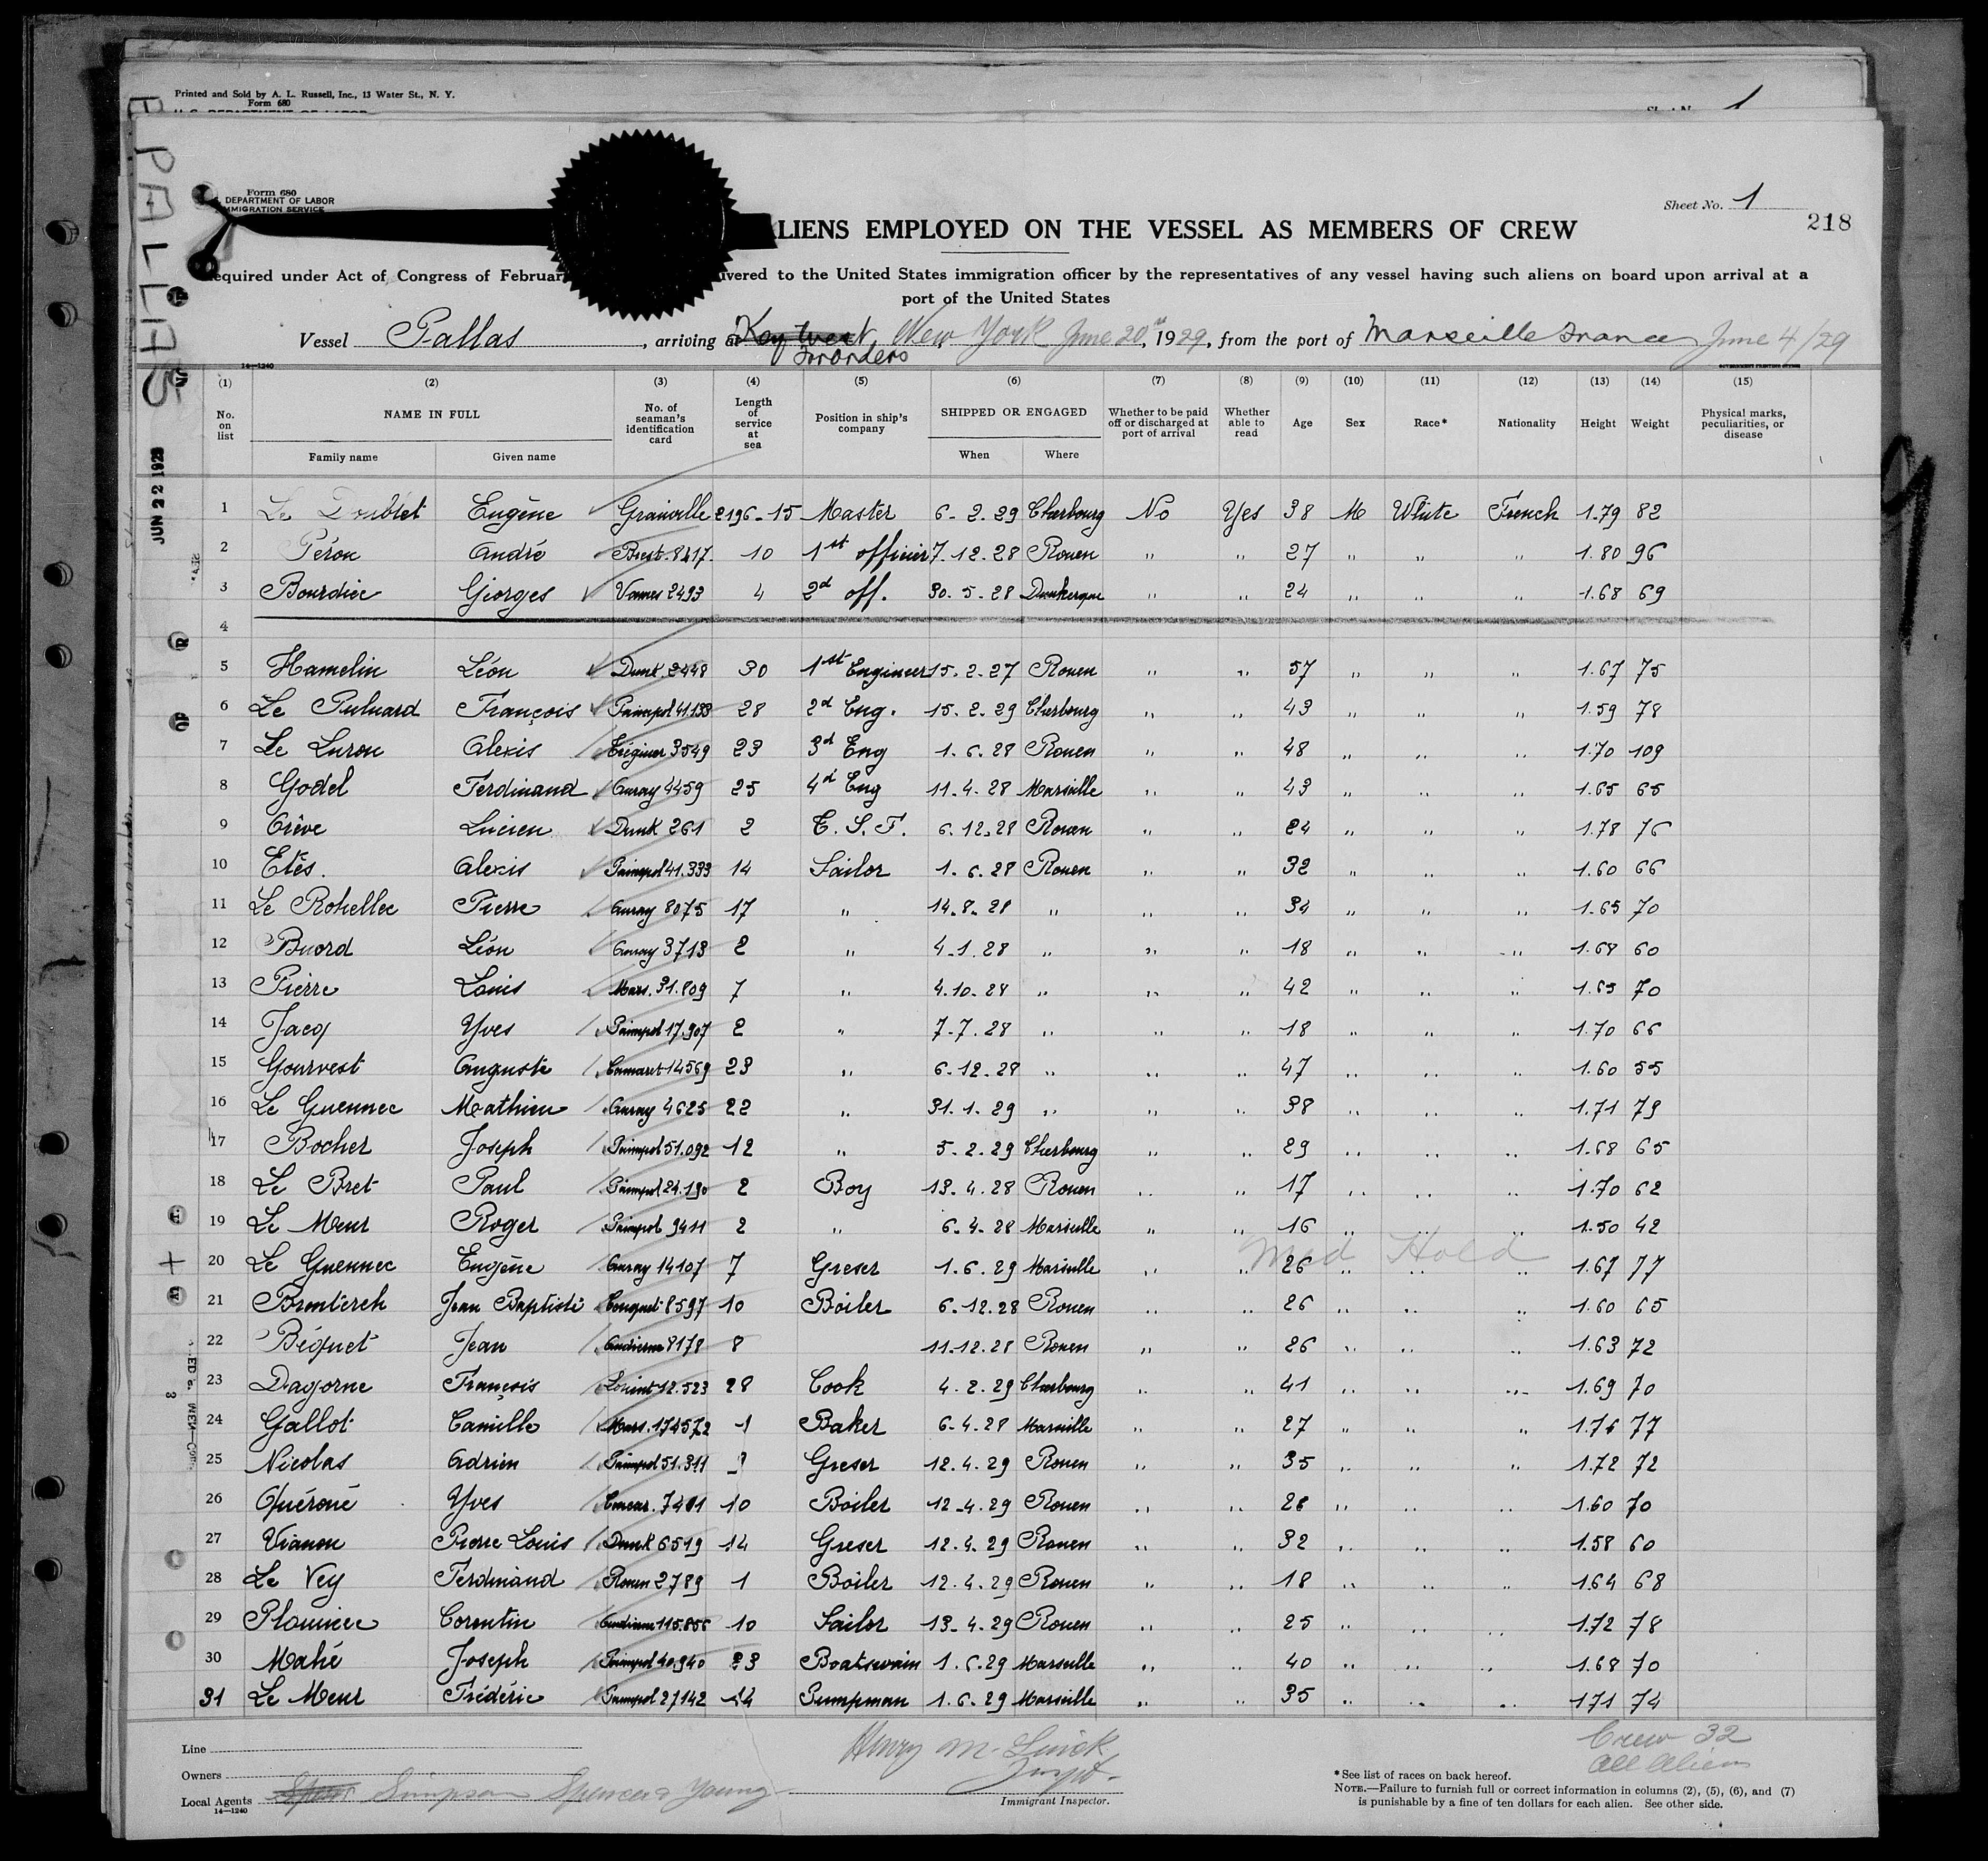 Printed and Sold by A. L. Russell, Inc., 13 Water St., N. Y.
Form 680
1
PALLAS
Form 680
DEPARTMENT OF LABOR
IMMIGRATION SERVICE
Sheet No. 1
218
LIENS EMPLOYED ON THE VESSEL AS MEMBERS OF CREW
equired under Act of Congress of Februar vered to the United States immigration officer by the representatives of any vessel having such aliens on board upon arrival at a
port of the United States
Vessel Pallas, arriving at Key West New York June 20th, 1929, from the port of Marseille France June 4/29
For orders
14—1240
JUN 22 1929
(1) (2) (3) (4) (5) (6) (7) (8) (9) (10) (11) (12) (13) (14) (15)
No. on list NAME IN FULL Family name Given name No. of seaman's identification card Length of service at sea Position in ship's company SHIPPED OR ENGAGED When Where Whether to be paid off or discharged at port of arrival Whether able to read Age Sex Race* Nationality Height Weight Physical marks, peculiarities, or disease
1 Le Doublet Eugène Granville 2196 - 15 Master 6. 2. 29 Cherbourg No Yes 38 M White French 1.79 82
2 Péron André Brest. 8417. 10 1st officier 7. 12. 28 Rouen " " 27 " " " 1.80 96
3 Bourdiec Giorges Vannes 2493 4 2d off. 30. 5. 28 Dunkerque " " 24 " " " 1.68 69
4
5 Hamelin Léon Dunk. 2448 30 1st Engineer 15. 2. 27 Rouen " " 57 " " " 1.67 75
6 Le Puluard François Paimpol 41.133 28 2d Eng. 15. 2. 29 Cherbourg " " 43 " " " 1.59 78
7 Le Luron Alexis 3549 23 3d Eng 1. 6. 28 Rouen " " 48 " " " 1.70 109
8 Godel Ferdinand Auray 4459 25 4d Eng 11. 4. 28 Marseille " " 43 " " " 1.65 65
9 Crève Lucien Dunk 261 2 T. S. F. 6. 12. 28 Rouen " " 24 " " " 1.78 76
10 Etés. Alexis Paimpol 41.333 14 Sailor 1. 6. 28 Rouen " " 32 " " " 1.60 66
11 Le Rohellec Pierre Auray 8075 17 " 14. 8. 28 " " " 34 " " " 1.65 70
12 Buord Léon Auray 3713 2 " 4. 1. 28 " " " 18 " " " 1.68 60
13 Pierre Louis Mars. 31.809 7 " 4. 10. 28 " " " 42 " " " 1.65 70
14 Jacq Yves Paimpol 17.907 2 " 7. 7. 28 " " " 18 " " " 1.70 66
15 Gourvest Auguste Camaret 14569 23 " 6. 12. 28 " " " 47 " " " 1.60 55
16 Le Guennec Mathieu Auray 4625 22 " 31. 1. 29 " " " 38 " " " 1.71 79
17 Bocher Joseph Paimpol 51.092 12 " 5. 2. 29 Cherbourg " " 29 " " " 1.68 65
18 Le Bret Paul Paimpol 24.190 2 Boy 13. 4. 28 Rouen " " 17 " " " 1.70 62
19 Le Meur Roger Paimpol 9411 2 " 6. 4. 28 Marseille " " 16 " " " 1.50 42
Med Hold
20 Le Guennec Eugène Auray 14107 7 Greser 1. 6. 29 Marseille " " 26 " " " 1.67 77
21 Brenterch Jean Baptiste Conquet 8597 10 Boiler 6. 12. 28 Rouen " " 26 " " " 1.60 65
22 Béquet Jean Audierne 8178 8 11. 12. 28 Rouen " " 26 " " " 1.63 72
23 Dagorne François Lorient 12.523 28 Cook 4. 2. 29 Cherbourg " " 41 " " " 1.69 70
24 Gallot Camille Mars. 174572 1 Baker 6. 4. 28 Marseille " " 27 " " " 1.76 77
25 Nicolas Adrien Paimpol 51.311 Greser 12. 4. 29 Rouen " " 35 " " " 1.72 72
26 Quéroué Yves 7401 10 Boiler 12. 4. 29 Rouen " " 28 " " " 1.60 70
27 Vianen Pierre Louis Dunk 6519 14 Greser 12. 4. 29 Rouen " " 32 " " " 1.58 60
28 Le Vey Ferdinand Rouen 2789 1 Boiler 12. 4. 29 Rouen " " 18 " " " 1.64 68
29 Plouinec Corentin Audierne 115.856 10 Sailor 13. 4. 29 Rouen " " 25 " " " 1.72 78
30 Mahé Joseph Paimpol 40.940 23 Boatswain 1. 6. 29 Marseille " " 40 " " " 1.68 70
31 Le Meur Frédéric Paimpol 27142 14 Pumpman 1. 6. 29 Marseille " " 35 " " " 1.71 74
Line
Owners
Local Agents Simpson Spence & Young
14—1240
Henry M.
Inspt.
Immigrant Inspector.
Crew 32
All Aliens
*See list of races on back hereof.
NOTE.—Failure to furnish full or correct information in columns (2), (5), (6), and (7)
is punishable by a fine of ten dollars for each alien. See other side.